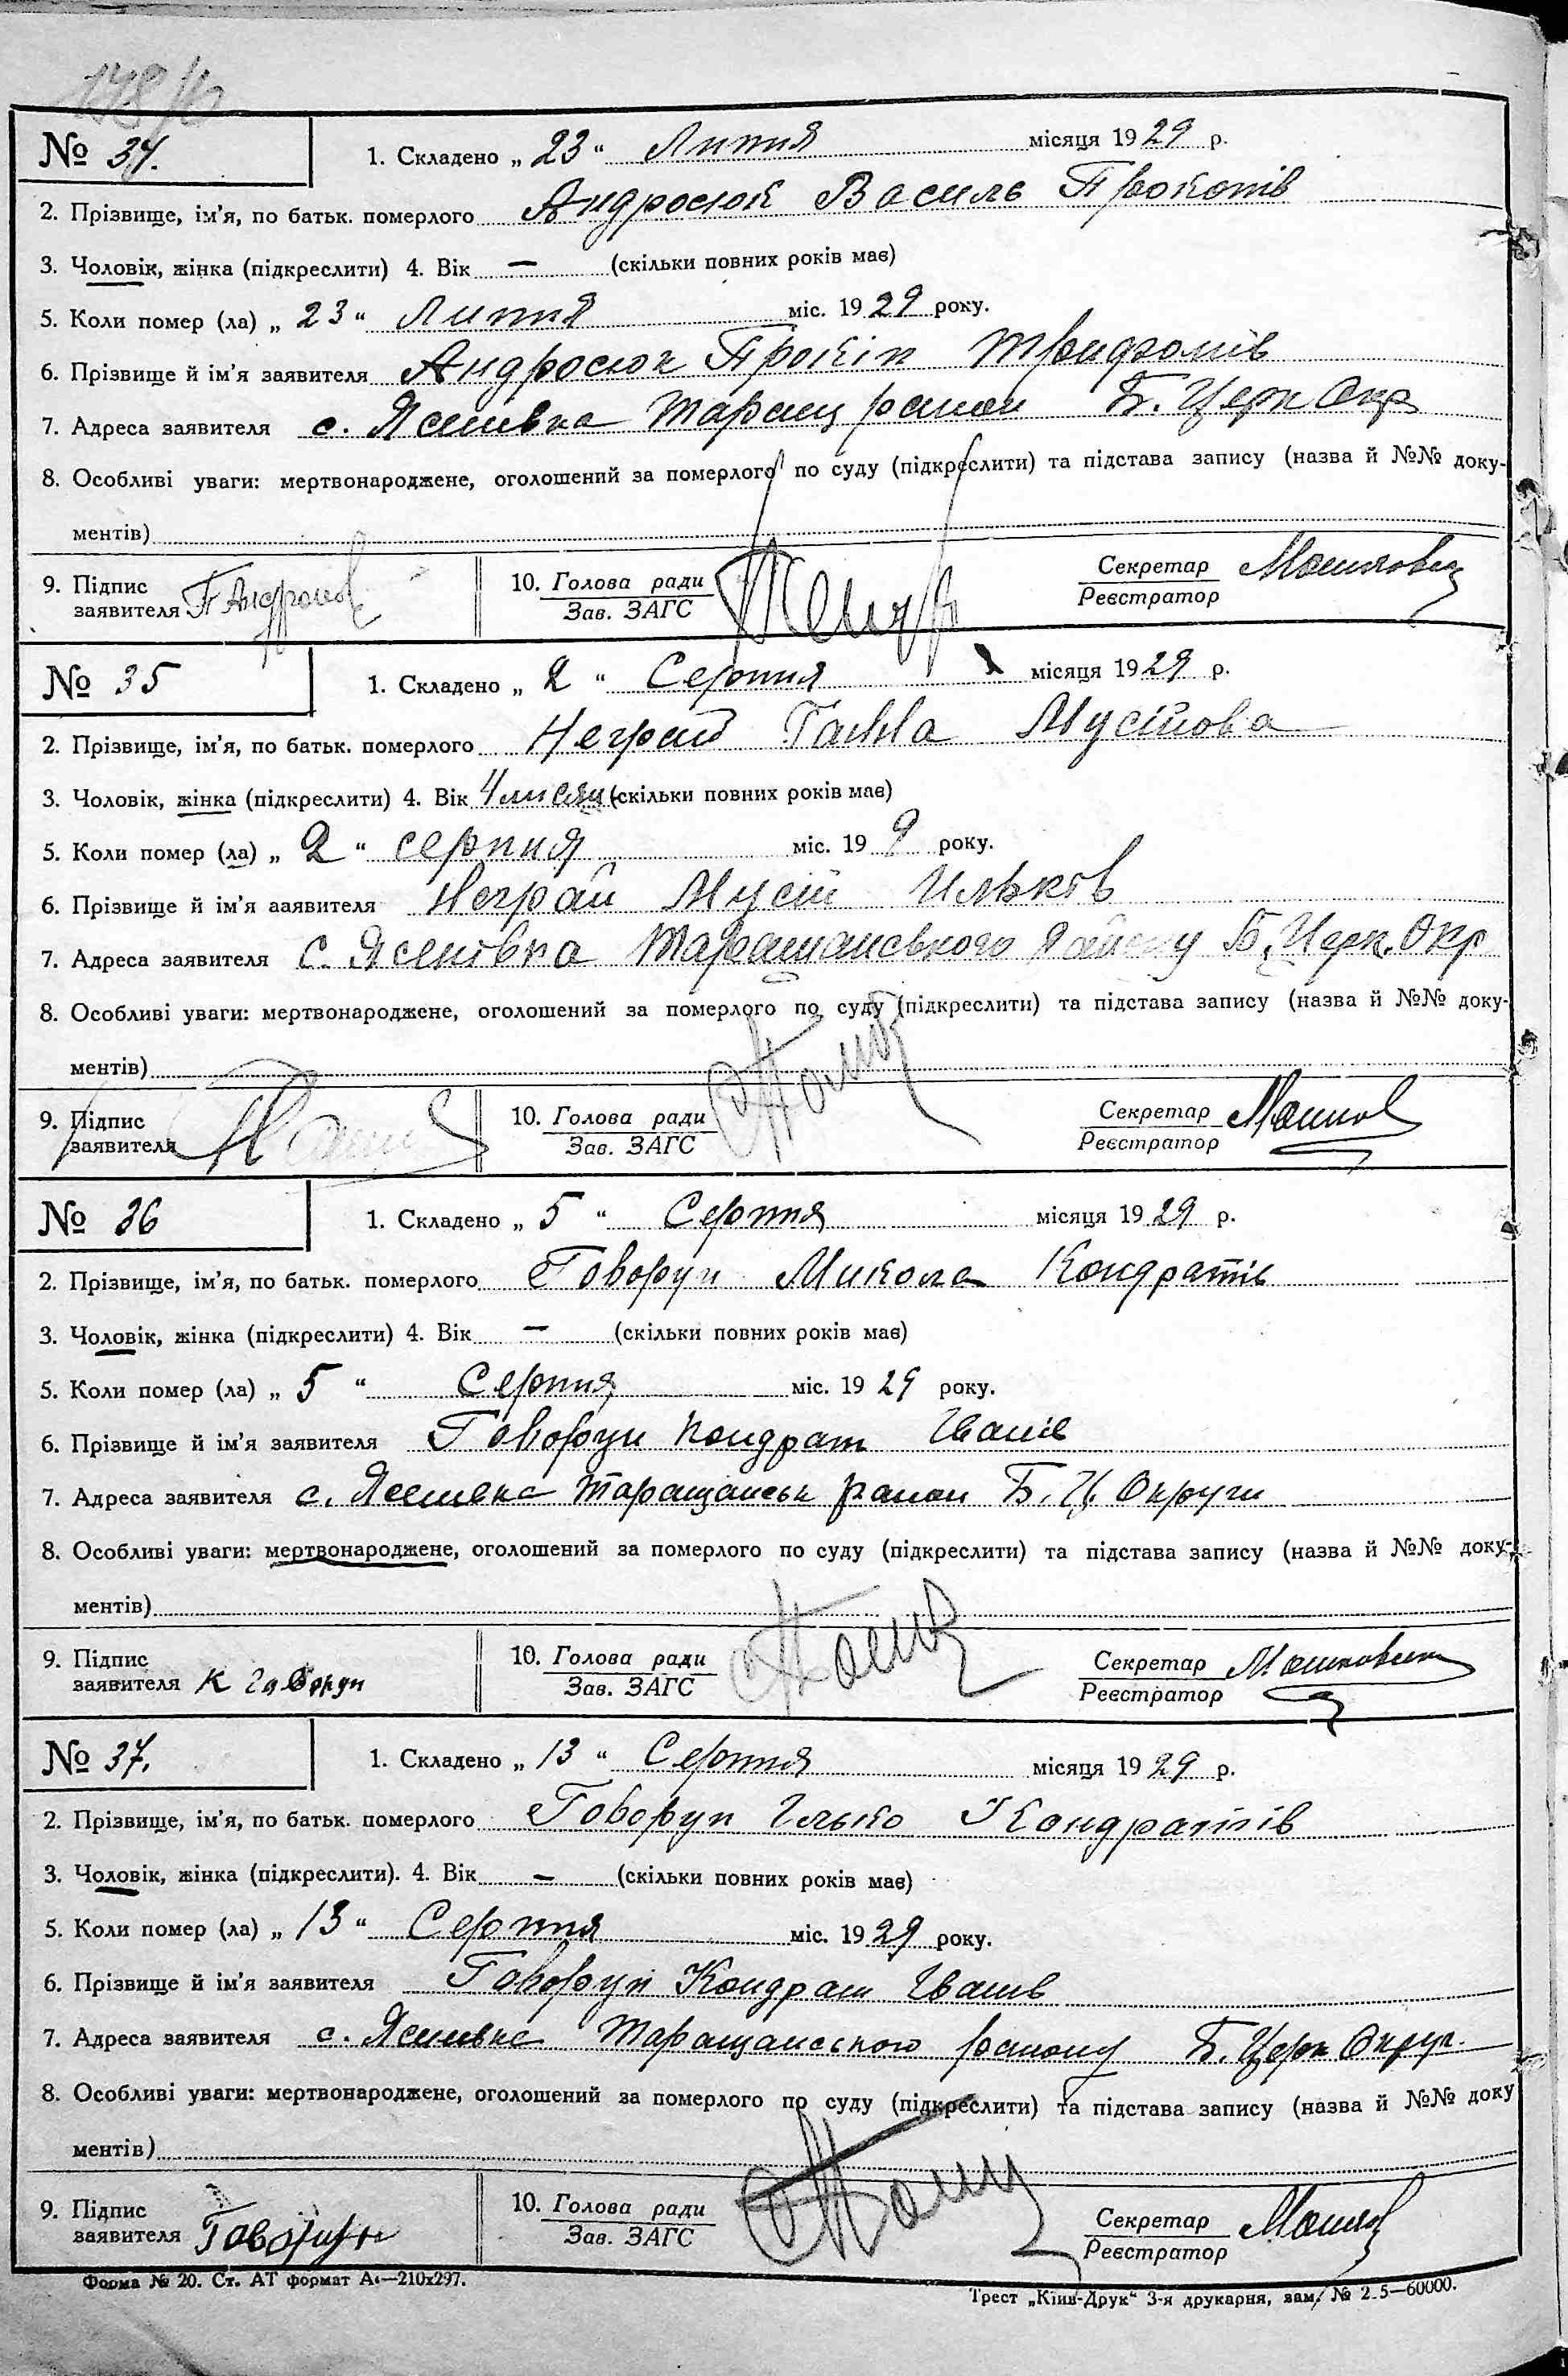 № 34. 1. Складено „ 23 “ Липня місяця 1929 р.
2. Прізвище, ім'я, по батьк. померлого Андросюк Василь Прокопів
3. Чоловік, жінка (підкреслити) 4. Вік — (скільки повних років має)
5. Коли помер (ла) „ 23 “ Липня міс. 1929 року.
6. Прізвище й ім'я заявителя Андросюк Прокіп
7. Адреса заявителя с. Ясенівка Таращ район Б. Церк Окр
8. Особливі уваги: мертвонароджене, оголошений за померлого по суду (підкреслити) та підстава запису (назва й №№ доку-
ментів)
9. Підпис 10. Голова ради Секретар
заявителя Зав. ЗАГС Реєстратор
№ 35 1. Складено „ 2 “ Серпня місяця 1929 р.
2. Прізвище, ім'я, по батьк. померлого Неграй Ганна Мусійова
3. Чоловік, жінка (підкреслити) 4. Вік 4 місяц (скільки повних років має)
5. Коли помер (ла) „ 2 “ серпня міс. 19 9 року.
6. Прізвище й ім'я ааявителя Неграй Мусій Ильков
7. Адреса заявителя с. Ясеновка Таращанського Району Б. Церк. Окр
8. Особливі уваги: мертвонароджене, оголошений за померлого по суду (підкреслити) та підстава запису (назва й №№ доку-
ментів)
9. Підпис 10. Голова ради Секретар
заявителя Зав. ЗАГС Реєстратор
№ 36 1. Складено „ 5 “ Серпня місяця 1929 р.
2. Прізвище, ім'я, по батьк. померлого Говорун Микола Кондратів
3. Чоловік, жінка (підкреслити) 4. Вік — (скільки повних років має)
5. Коли помер (ла) „ 5 “ Серпня міс. 1929 року.
6. Прізвище й ім'я заявителя Говорун Кондрат Іванів
7. Адреса заявителя с. Ясенівка Таращанськ район Б. Ц. Округи
8. Особливі уваги: мертвонароджене, оголошений за померлого по суду (підкреслити) та підстава запису (назва й №№ доку-
ментів)
9. Підпис 10. Голова ради Секретар
заявителя К Говорун Зав. ЗАГС Реєстратор
№ 37. 1. Складено „ 13 “ Серпня місяця 1929 р.
2. Прізвище, ім'я, по батьк. померлого Говорун Ілько Кондратів
3. Чоловік, жінка (підкреслити). 4. Вік — (скільки повних років має)
5. Коли помер (ла) „ 13 “ Серпня міс. 1929 року.
6. Прізвище й ім'я заявителя Говорун Кондрат Іванів
7. Адреса заявителя с. Ясенівка Таращанського району Б. Церк Округ.
8. Особливі уваги: мертвонароджене, оголошений за померлого по суду (підкреслити) та підстава запису (назва й №№ доку
ментів)
9. Підпис 10. Голова ради Секретар
заявителя Говорун Зав. ЗАГС Реєстратор
Форма № 20. Ст. АТ формат А4—210х297. Трест „Київ-Друк“ 3-я друкарня, зам. № 2.5—60000.